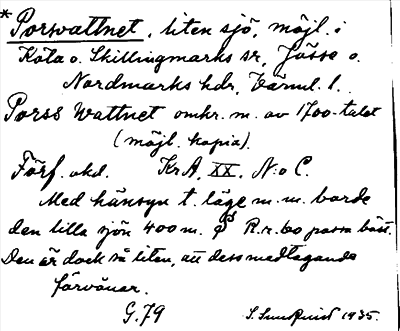 * Porsvattnet, liten sjö, möjl. i
Köla o. Skillingmarks sn, Jösse o.
Nordmarks hdr, Värml. l.
Porss Wattnet omkr. m. av 1700-talet
(möjl. kopia).
Förf. okd. Kr A, XX, N:o C.
Med hänsyn t. läge m. m. borde
den lilla sjön 400 m. R.r. 60 passa bäst.
Den är dock så liten, att dess medtagande
förvånar.
G. 79 S. Sundqvist 1935.